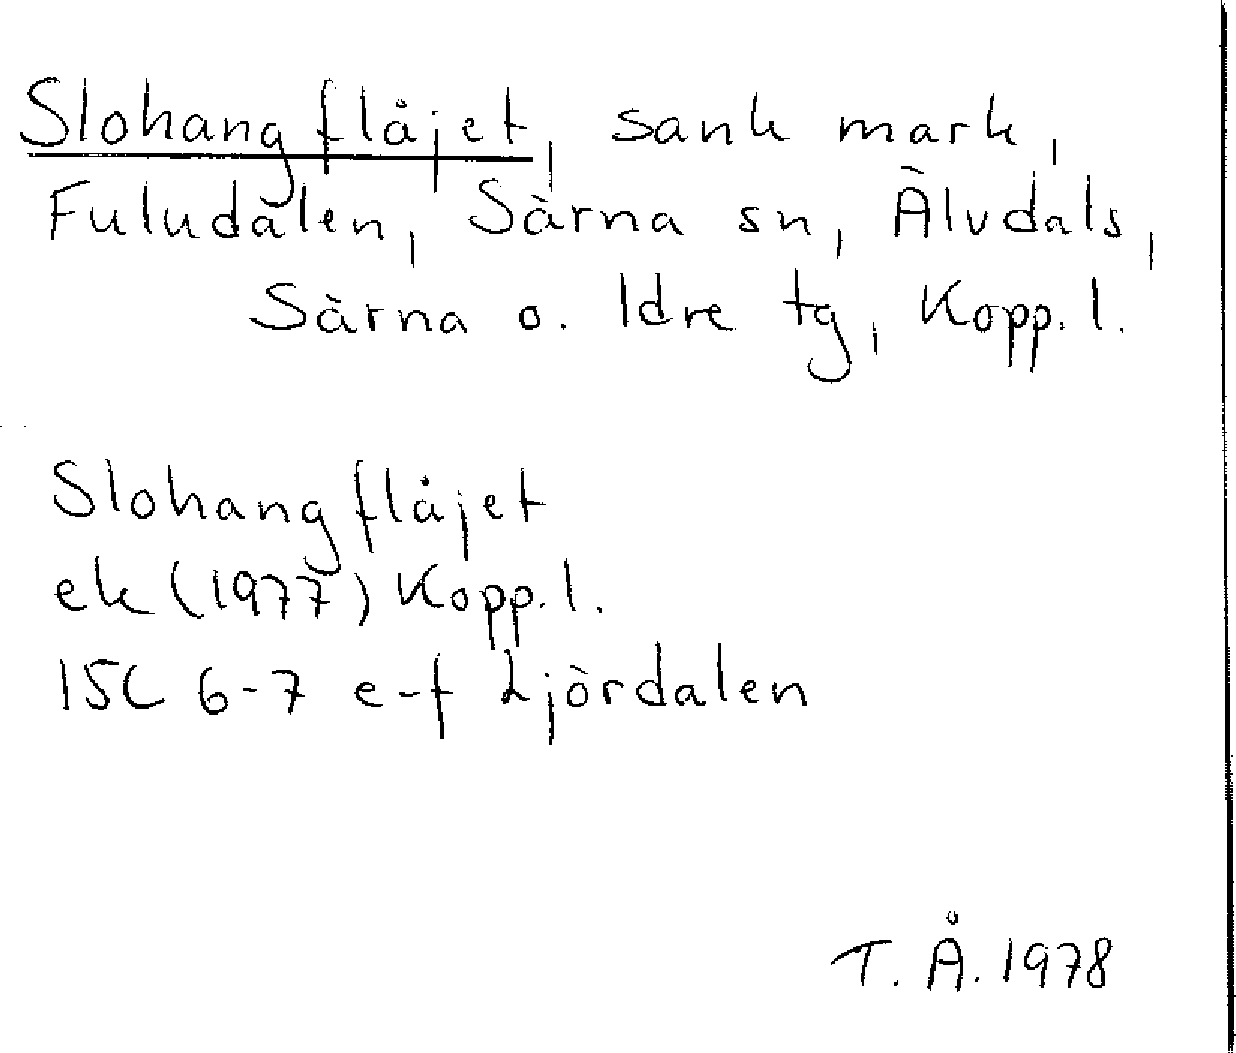 Slohangflåjet, sank mark,
Fuludalen, Särna sn, Älvdals,
Särna o. Idre tg, Kopp. l.
Slohangflåjet
ek (1977) Kopp. l.
15C 6-7 e-f Ljördalen
T. Å. 1978